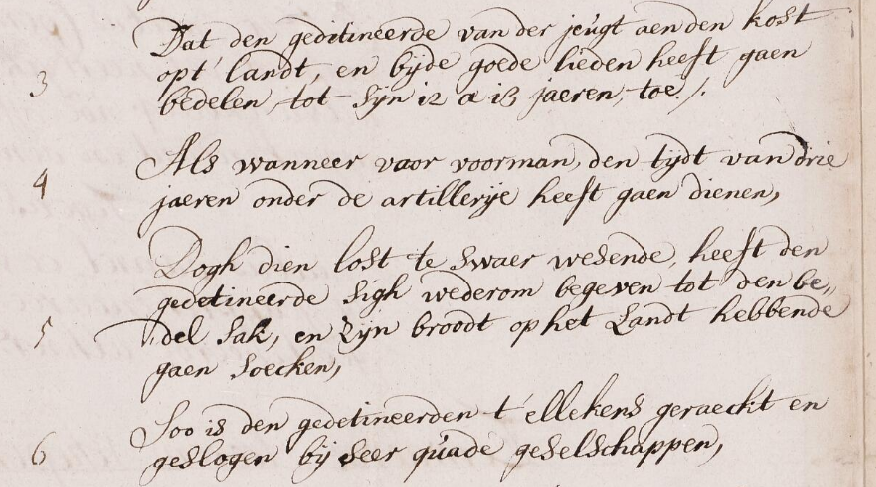 Dat den gedetineerde van der jeugt aen den kost
3 opt' landt, en bijde goede lieden heeft gaen
bedelen, tot sijn 12 a 13 jaeren, toe /.
Als wanneer voor voorman, den tijdt van drie
4 jaeren onder de artillerije heeft gaen dienen,
Dogh dien lost te swaer wesende, heeft den
gedetineerde sigh wederom begeven tot den be„
5 del sak, en zijn broodt op het Landt hebbende
gaen soecken,
Soo is den gedetineerden t' ellekens geraeckt en
6 geslogen bij seer quade geselschappen,